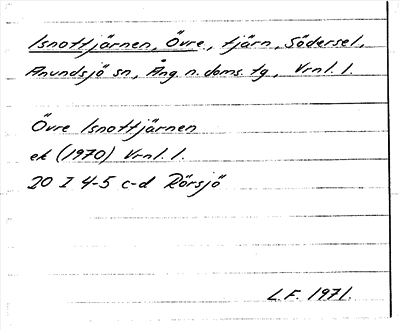 Isnottjärnen, Övre, tjärn, Södersel,
Anundsjö sn, Ång. n. doms. tg, Vrnl. l.
Övre Isnottjärnen
ek (1970) Vrnl. l.
20 I 4-5 c-d Rörsjö
L.F. 1971.